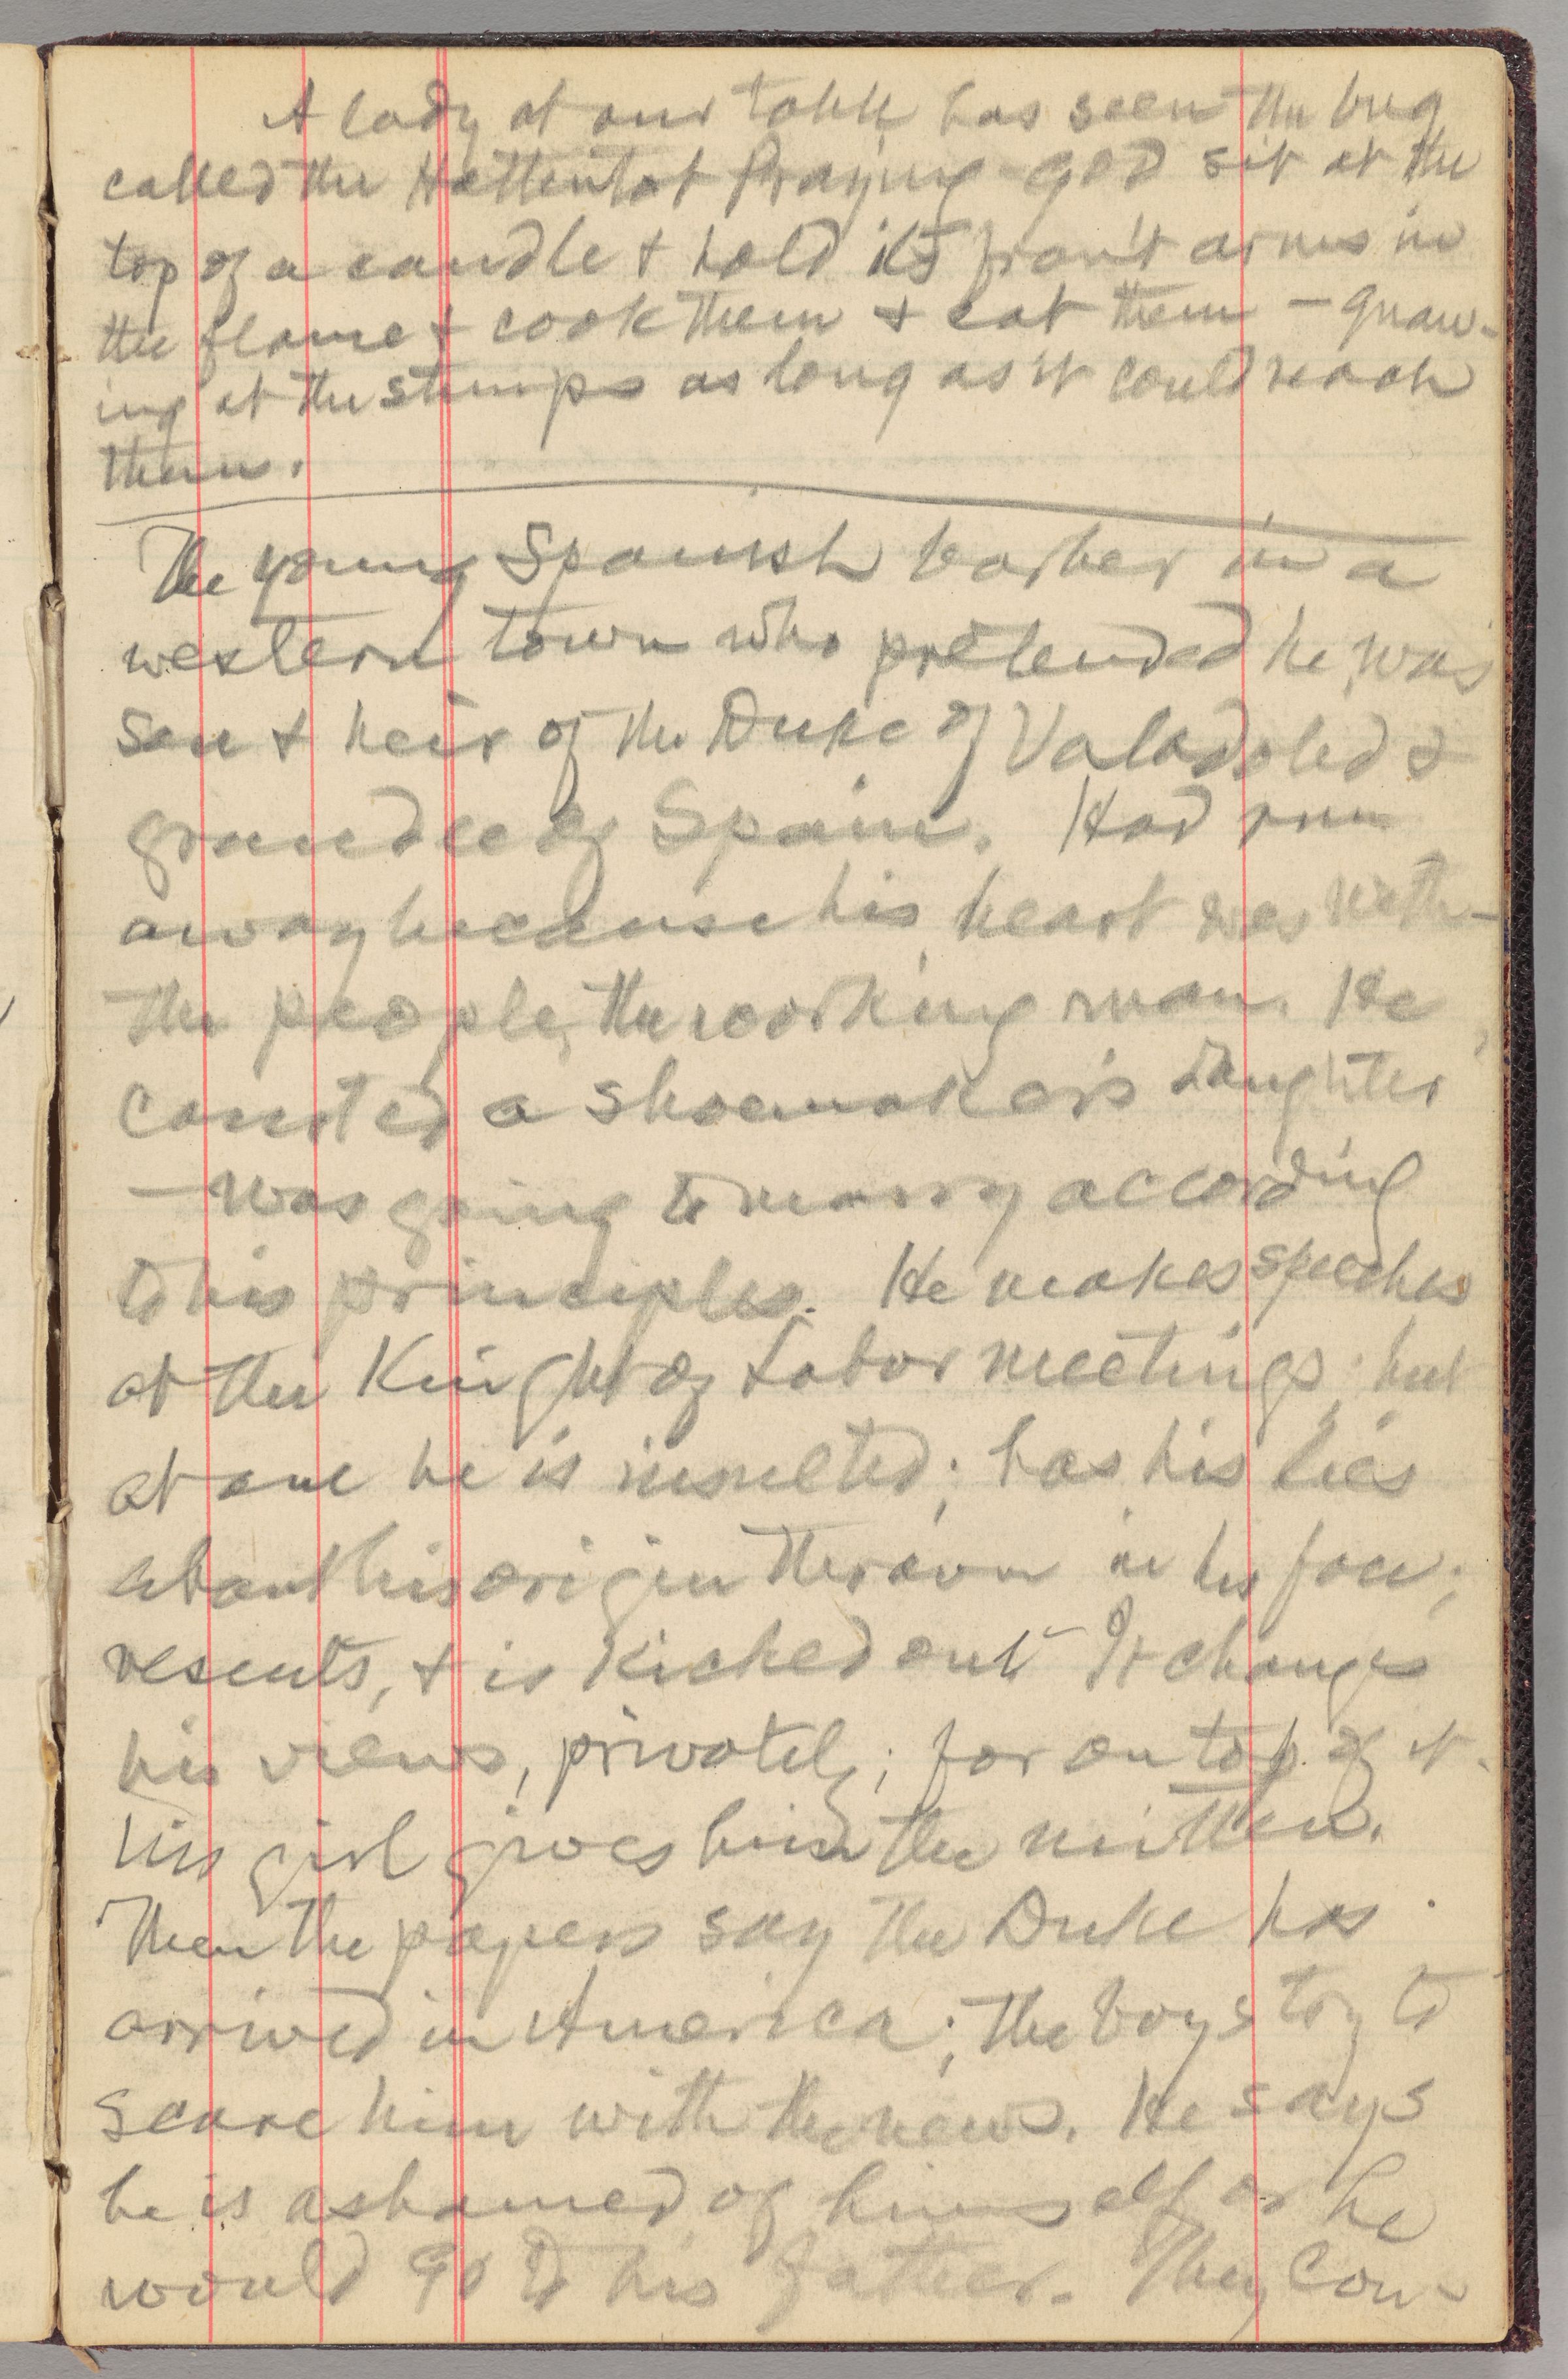 A lady at our table has seen the bug
called the Hottentot Praying-God sit at the
top of a candle & hold its front arms in
the flame & cook them & eat them — gnaw-
ing at the stumps as long as it could reach
them.
The young Spanish barber in a
western town who pretended he was
son & heir of the Duke of Valadolid &
grandee of Spain. Had run
away because his heart was with
the people, the working man. He
courted a shoemaker's daughter
— was going to marry according
to his principles. He makes speeches
at the Knight of Labor meetings; but
at one he is insulted; has his lies
about his origin thrown in his face;
resents, & is kicked out. It changes
his views, privately; for on top of it
his girl gives him the mitten.
Then the papers say the Duke has
arrived in America; the boys try to
scare him with the news. He says
he is ashamed of himself or he
would go to his father. They con-